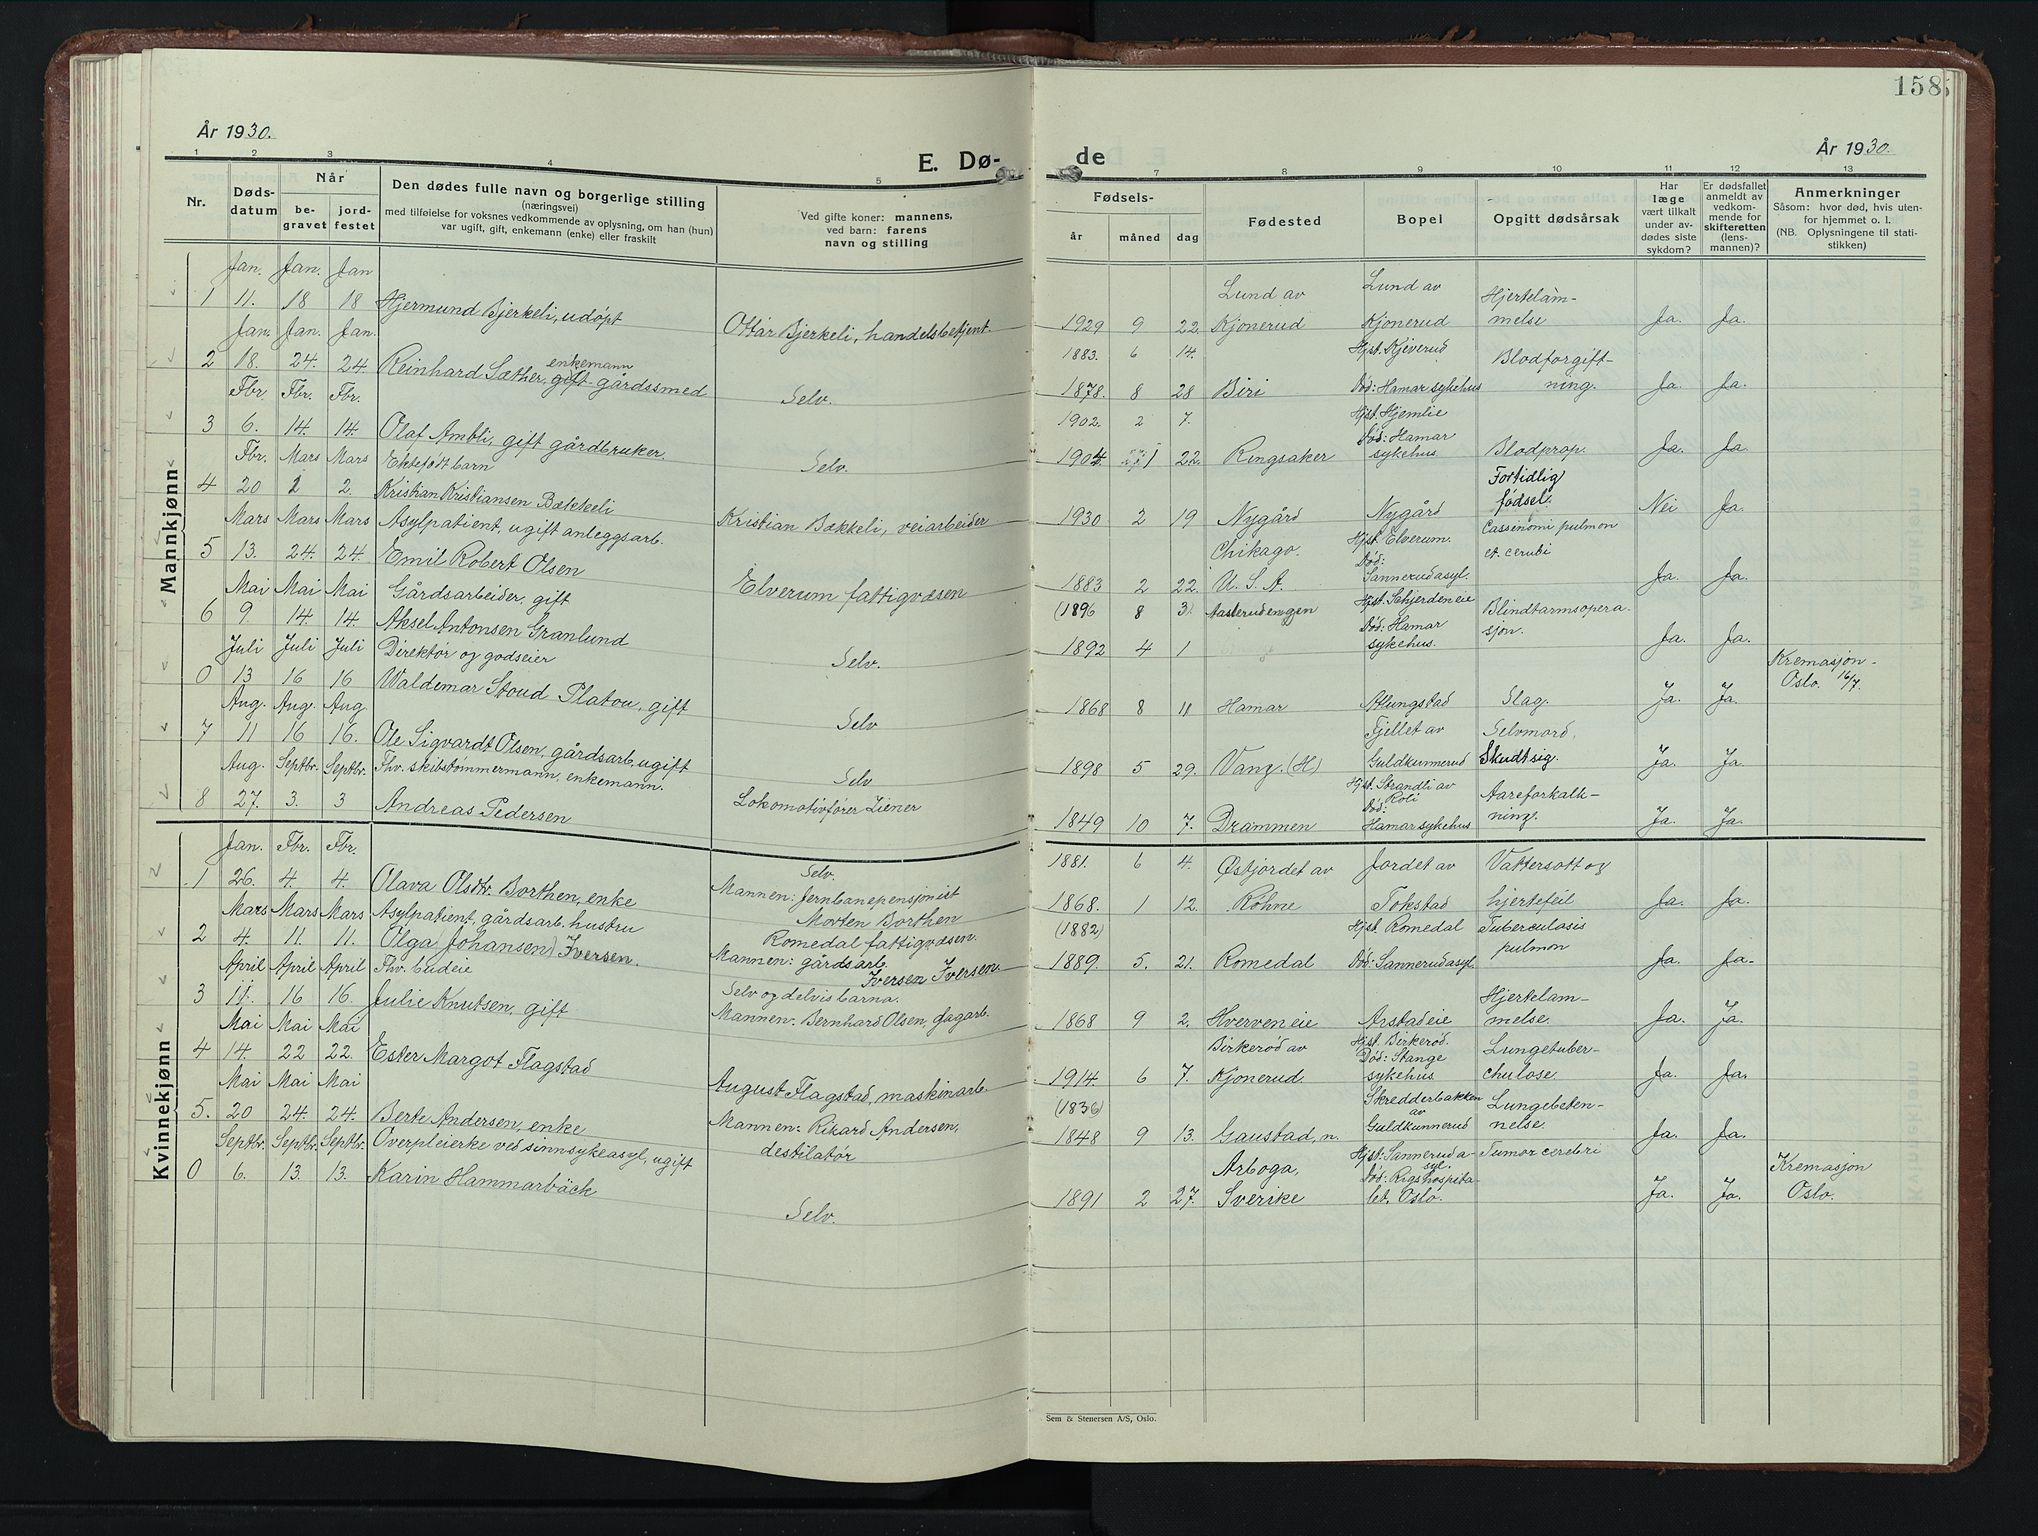 158
År 1930.
E. Dø-
de
År 1930.
1 2 3 4 5 7 8 9 10 11 12 13
Nr.
Døds-
datum
Når
be-
gravet
jord-
festet
Den dødes fulle navn og borgerlige stilling
(næringsvei)
med tilføielse for voksnes vedkommende av oplysning, om han (hun)
var ugift, gift, enkemann (enke) eller fraskilt
Ved gifte koner: mannens,
ved barn: farens
navn og stilling
Fødsels-
år
måned
dag
Fødested
Bopel
Opgitt dødsårsak
Har
læge
vært tilkalt
under av-
dødes siste
sykdom?
Er dødsfallet
anmeldt av
vedkom-
mende for
skifteretten
(lens-
mannen)?
Anmerkninger
Såsom: hvor død, hvis uten-
for hjemmet o. l.
(NB. Oplysningene til stati-
stikken)
Mannkjønn
Jan. Jan. Jan Lund av Lund av Hjertelam-
1 11. 18 18 Hjermund Bjerkeli, udøpt Ottar Bjerkeli, handelsbetjent. 1929 9 22 Kjonerud Kjonerud melse Ja. Ja.
Jan. Jan. Jan. enkemann 1883. 6 14. Hjst. Kjeverud Blodforgift-
2 18. 24. 24 Reinhard Sæther, gift gårdssmed Selv. 1878. 8 28 Biri Død: Hamar sykehus ning. Ja. Ja.
Fbr. Fbr. Fbr. 1902. 2 7. Hjst. Hjemlie
3 6. 14. 14. Olaf Ambli, gift gårdbruker Selv. 1904 1 22. Ringsaker Død: Hamar sykehus. Blodprop. Ja. Ja.
Fbr. Mars Mars Ektefødt barn Fortidlig
4 20 2 2. Kristian Kristiansen Bækkeli Kristian Bækkeli, veiarbeider 1930 2 19 Nygård Nygård fødsel. Nei Ja.
Mars Mars Mars Asylpatient, ugift anleggsarb. Chikago. Hjst. Elverum. Cassenomi pulmon
5 13. 24. 24. Emil Robert Olsen Elverum fattigvæsen 1883 2 22. U. S. A. Død: Sannerudasyl. et. cerubi Ja. Ja.
Mai Mai Mai Gårdsarbeider, gift (1896 8 3) Aasterudengen Hjst. Schjerdeneie Blindtarmsopera-
6 9. 14. 14. Aksel Antonsen Granlund Selv. 1892 4 1 Død: Hamar sykehus. sjon. Ja. Ja.
Juli Juli Juli Direktør og godseier Kremasjon-
0 13 16 16 Waldemar Stoud Platou, gift Selv 1868 8 11 Hamar Atlungstad Slag. Ja. Ja. Oslo. 16/7.
Aug. Aug. Aug. Fjellet av Selvmord,
7 11 16 16. Ole Sigvardt Olsen, gårdsarb. ugift Selv 1898 5 29. Vang. (H) Guldkunnerud Skudt sig. Ja. Ja.
Aug. Septbr. Septbr. Fhv. skibstømmermann, enkemann. Hjst. Strandli av Roli Aareforkalk-
8 27. 3. 3 Andreas Pedersen Lokomotivfører Ziener 1849 10 7. Drammen Død: Hamar sykehus ning. Ja. Ja.
Kvinnekjønn
Jan. Fbr. Fbr. Selv. 1881. 6 4. Østjordet av Jordet av Vattersott og
1 26. 4. 4. Olava Olsdtr. Borthen, enke Mannen: Jernbanepensjonist Morten Borthen 1868. 1 12. Rohne Tokstad hjertefeil Ja. Ja.
Mars Mars Mars Asylpatient, gårdsarb. hustru Romedal fattigvæsen. (1882) Hjst. Romedal Tuberculosis
2 4. 11. 11. Olga (Johansen) Iversen. Mannen: gårdsarb. Iversen Iversen. 1889. 5. 21. Romedal Død: Sannerudasyl. pulmon Ja. Ja.
April April April Fhv. budeie Selv og delvis barna. Hjertelam-
3 11. 16 16. Julie Knutsen, gift Mannen: Bernhard Olsen, dagarb. 1868 9 2. Hverveneie Arstadeie melse. Ja. Ja.
Mai Mai Mai Birkerød av Hjst. Birkerød. Lungetuber-
4 14. 22 22. Ester Margot Flagstad August Flagstad, maskinarb. 1914. 6 7. Kjonerud. Død: Stange sykehus. chulose. Ja. Ja.
Mai Mai Mai (1836) Skredderbakken av Lungebeten-
5. 20 24. 24. Berte Andersen, enke Mannen: Rikard Andersen, destilatør 1848 9 13. Gaustad, n. Guldkunnerud nelse. Ja. Ja.
Septbr. Septbr. Septbr. Overpleierke ved sinnsykeasyl, ugift Arboga, Hjst: Sannerudasyl. Tumor cerebri Kremasjon
0 6. 13. 13. Karin Hammarbäck Selv. 1891 2 27. Sverike Død: Rigshospitalet, Oslo. Ja. Ja. Oslo.
Sem & Stenersen A/S, Oslo.